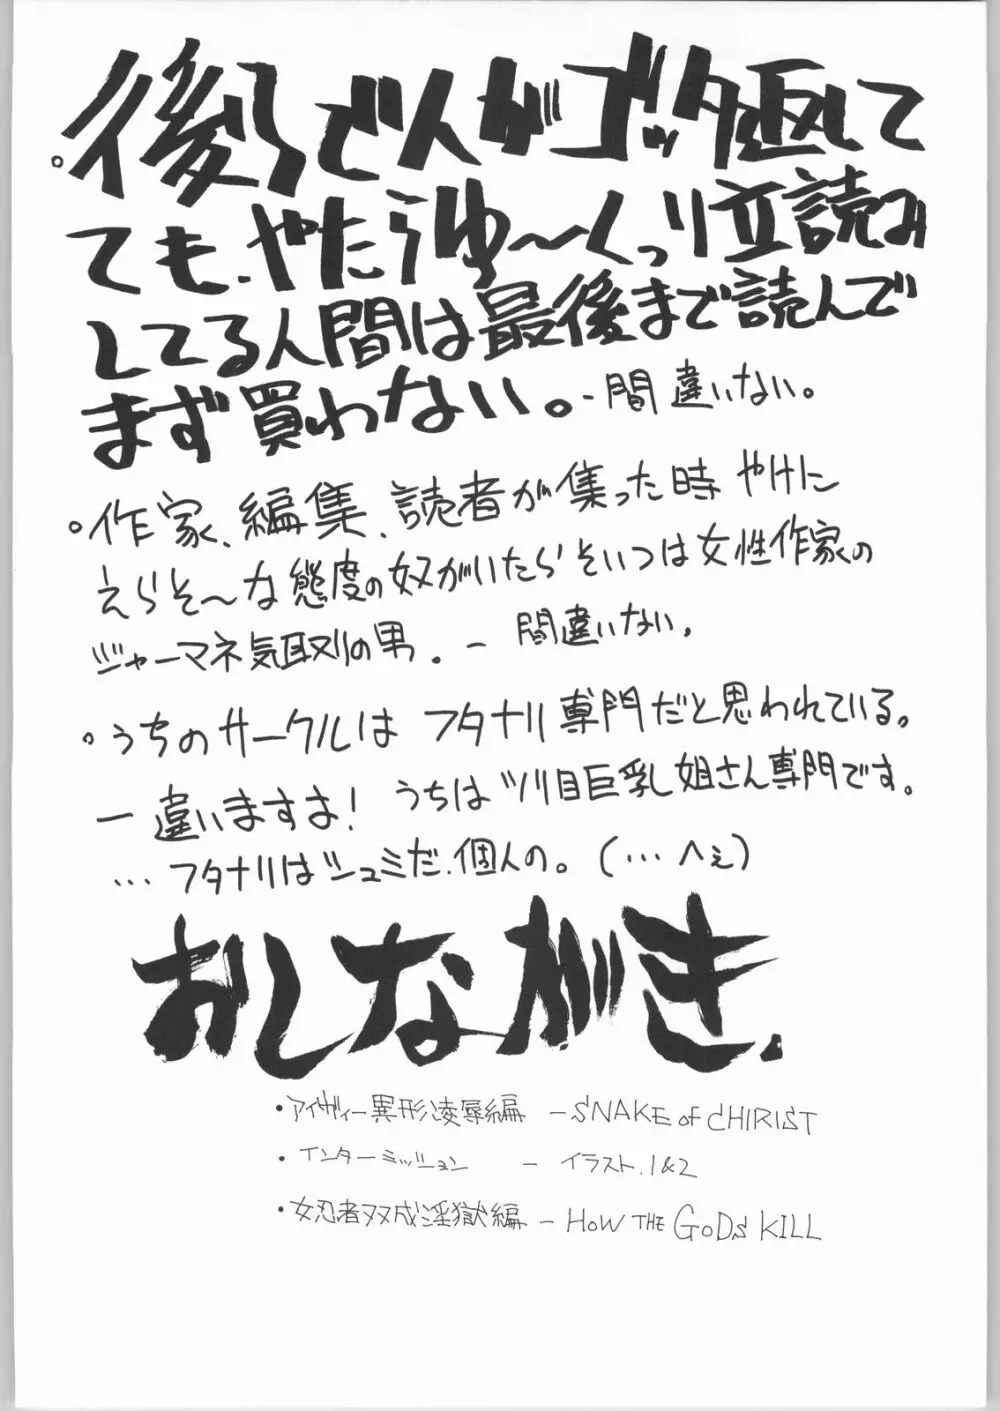 。後ろで人がゴッタ返して
ても、やたらゆ〜くっり立読み
してる人間は最後まで読んで
まず買わない。-間違いない。
。作家、編集、読者が集った時 やけに
えらそ〜な態度の奴がいたらそいつは女性作家の
ジャーマネ気取りの男。- 間違いない。
。うちのサークルは フタナリ専門だと思われている。
ー違いますよ! うちはツリ目巨乳姐さん専門です。
…フタナリはシュミだ.個人の。(…へぇ)
おしながき.
・アイヴィー異形凌辱編 -SNAKE of CHIRIST
・インターミッション - イラスト.1&2
・女忍者双成淫獄編 - HOW THE GODS KILL